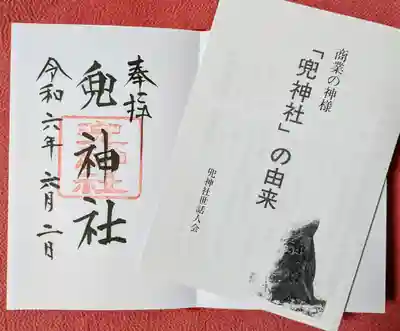 奉拝
兜神社
令和六年六月二日
商業の神様
「兜神社」の由来
兜神社世話人会